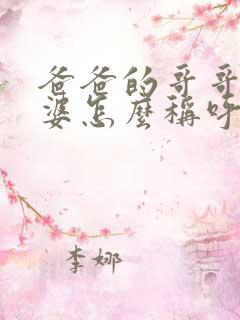 爸爸的哥哥
婆怎麼稱呼
李娜